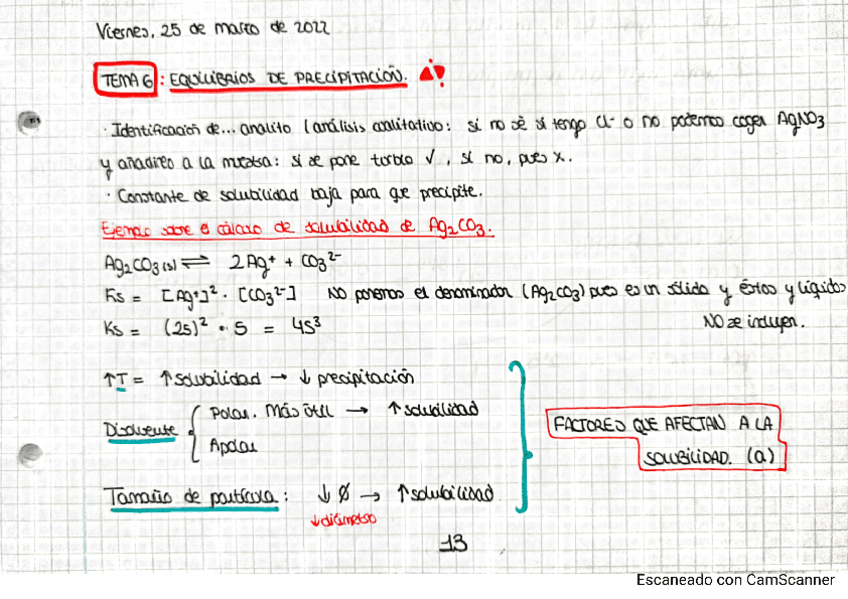 Viernes, 25 de marzo de 2022
TEMA 6: EQUILIBRIOS DE PRECIPITACIÓN.
· Identificación de... analito (análisis cualitativo: si no sé si tengo Cl⁻ o no podemos coger AgNO3
y añadirlo a la muestra: si se pone turbio √, si no, pues x.
· Constante de solubilidad baja para que precipite.
Ejemplo sobre el cálculo de solubilidad de Ag2CO3.
Ag2CO3(s) ⇌ 2Ag⁺ + CO3²⁻
Ks = [Ag⁺]² · [CO3²⁻] NO ponemos el denominador (Ag2CO3) pues es un sólido y éstos y líquidos
NO se incluyen.
Ks = (2s)² · s = 4s³
↑T = ↑solubilidad → ↓ precipitación
Disolvente { Polar. Más útil → ↑solubilidad
Apolar
Tamaño de partícula: ↓ Ø → ↑solubilidad
↓diámetro
FACTORES QUE AFECTAN A LA
SOLUBILIDAD. (a)
13
Escaneado con CamScanner